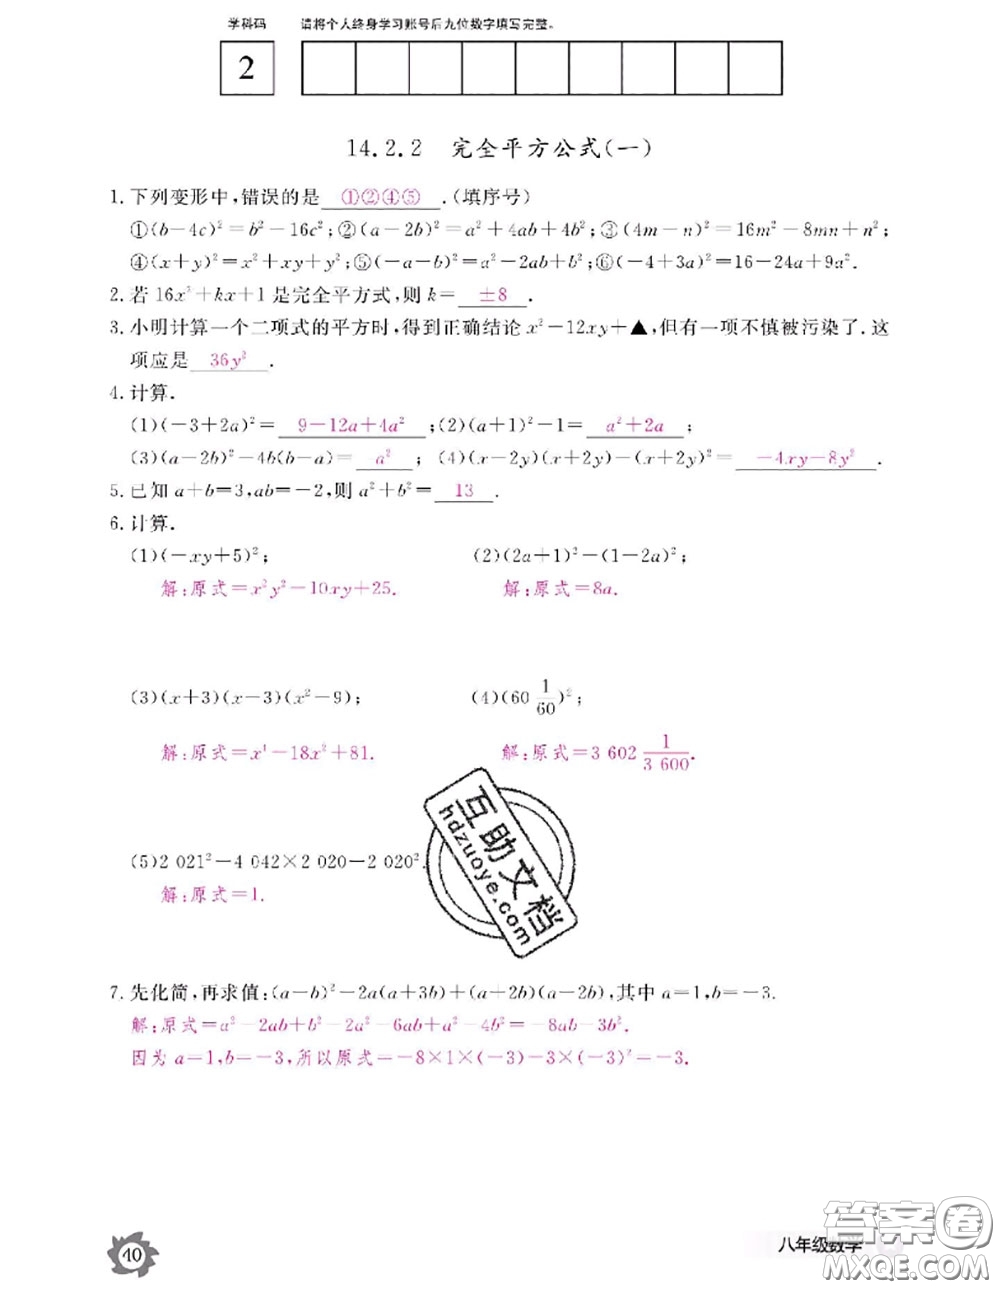 学科码 请将个人终身学习账号后九位数字填写完整。
2
14.2.2 完全平方公式(一)
1. 下列变形中,错误的是 ①②④⑤ .(填序号)
①(b-4c)²=b²-16c²;②(a-2b)²=a²+4ab+4b²;③(4m-n)²=16m²-8mn+n²;
④(x+y)²=x²+xy+y²;⑤(-a-b)²=a²-2ab+b²;⑥(-4+3a)²=16-24a+9a².
2. 若 16x²+kx+1 是完全平方式,则 k= ±8 .
3. 小明计算一个二项式的平方时,得到正确结论 x²-12xy+▲,但有一项不慎被污染了.这
项应是 36y² .
4. 计算.
(1)(-3+2a)²= 9-12a+4a² ;(2)(a+1)²-1= a²+2a ;
(3)(a-2b)²-4b(b-a)= a² ; (4)(x-2y)(x+2y)-(x+2y)²= -4xy-8y² .
5. 已知 a+b=3,ab=-2,则 a²+b²= 13 .
6. 计算.
(1)(-xy+5)²; (2)(2a+1)²-(1-2a)²;
解:原式=x²y²-10xy+25. 解:原式=8a.
(3)(x+3)(x-3)(x²-9); (4)(60 1/60)²;
解:原式=x⁴-18x²+81. 解:原式=3 602 1/3 600.
(5)2 021²-4 042×2 020-2 020².
解:原式=1.
互助文档
hdzuoye.com
7. 先化简,再求值:(a-b)²-2a(a+3b)+(a+2b)(a-2b),其中 a=1,b=-3.
解:原式=a²-2ab+b²-2a²-6ab+a²-4b²=-8ab-3b².
因为 a=1,b=-3,所以原式=-8×1×(-3)-3×(-3)²=-3.
40
八年级数学
答案卷
MXQE.COM